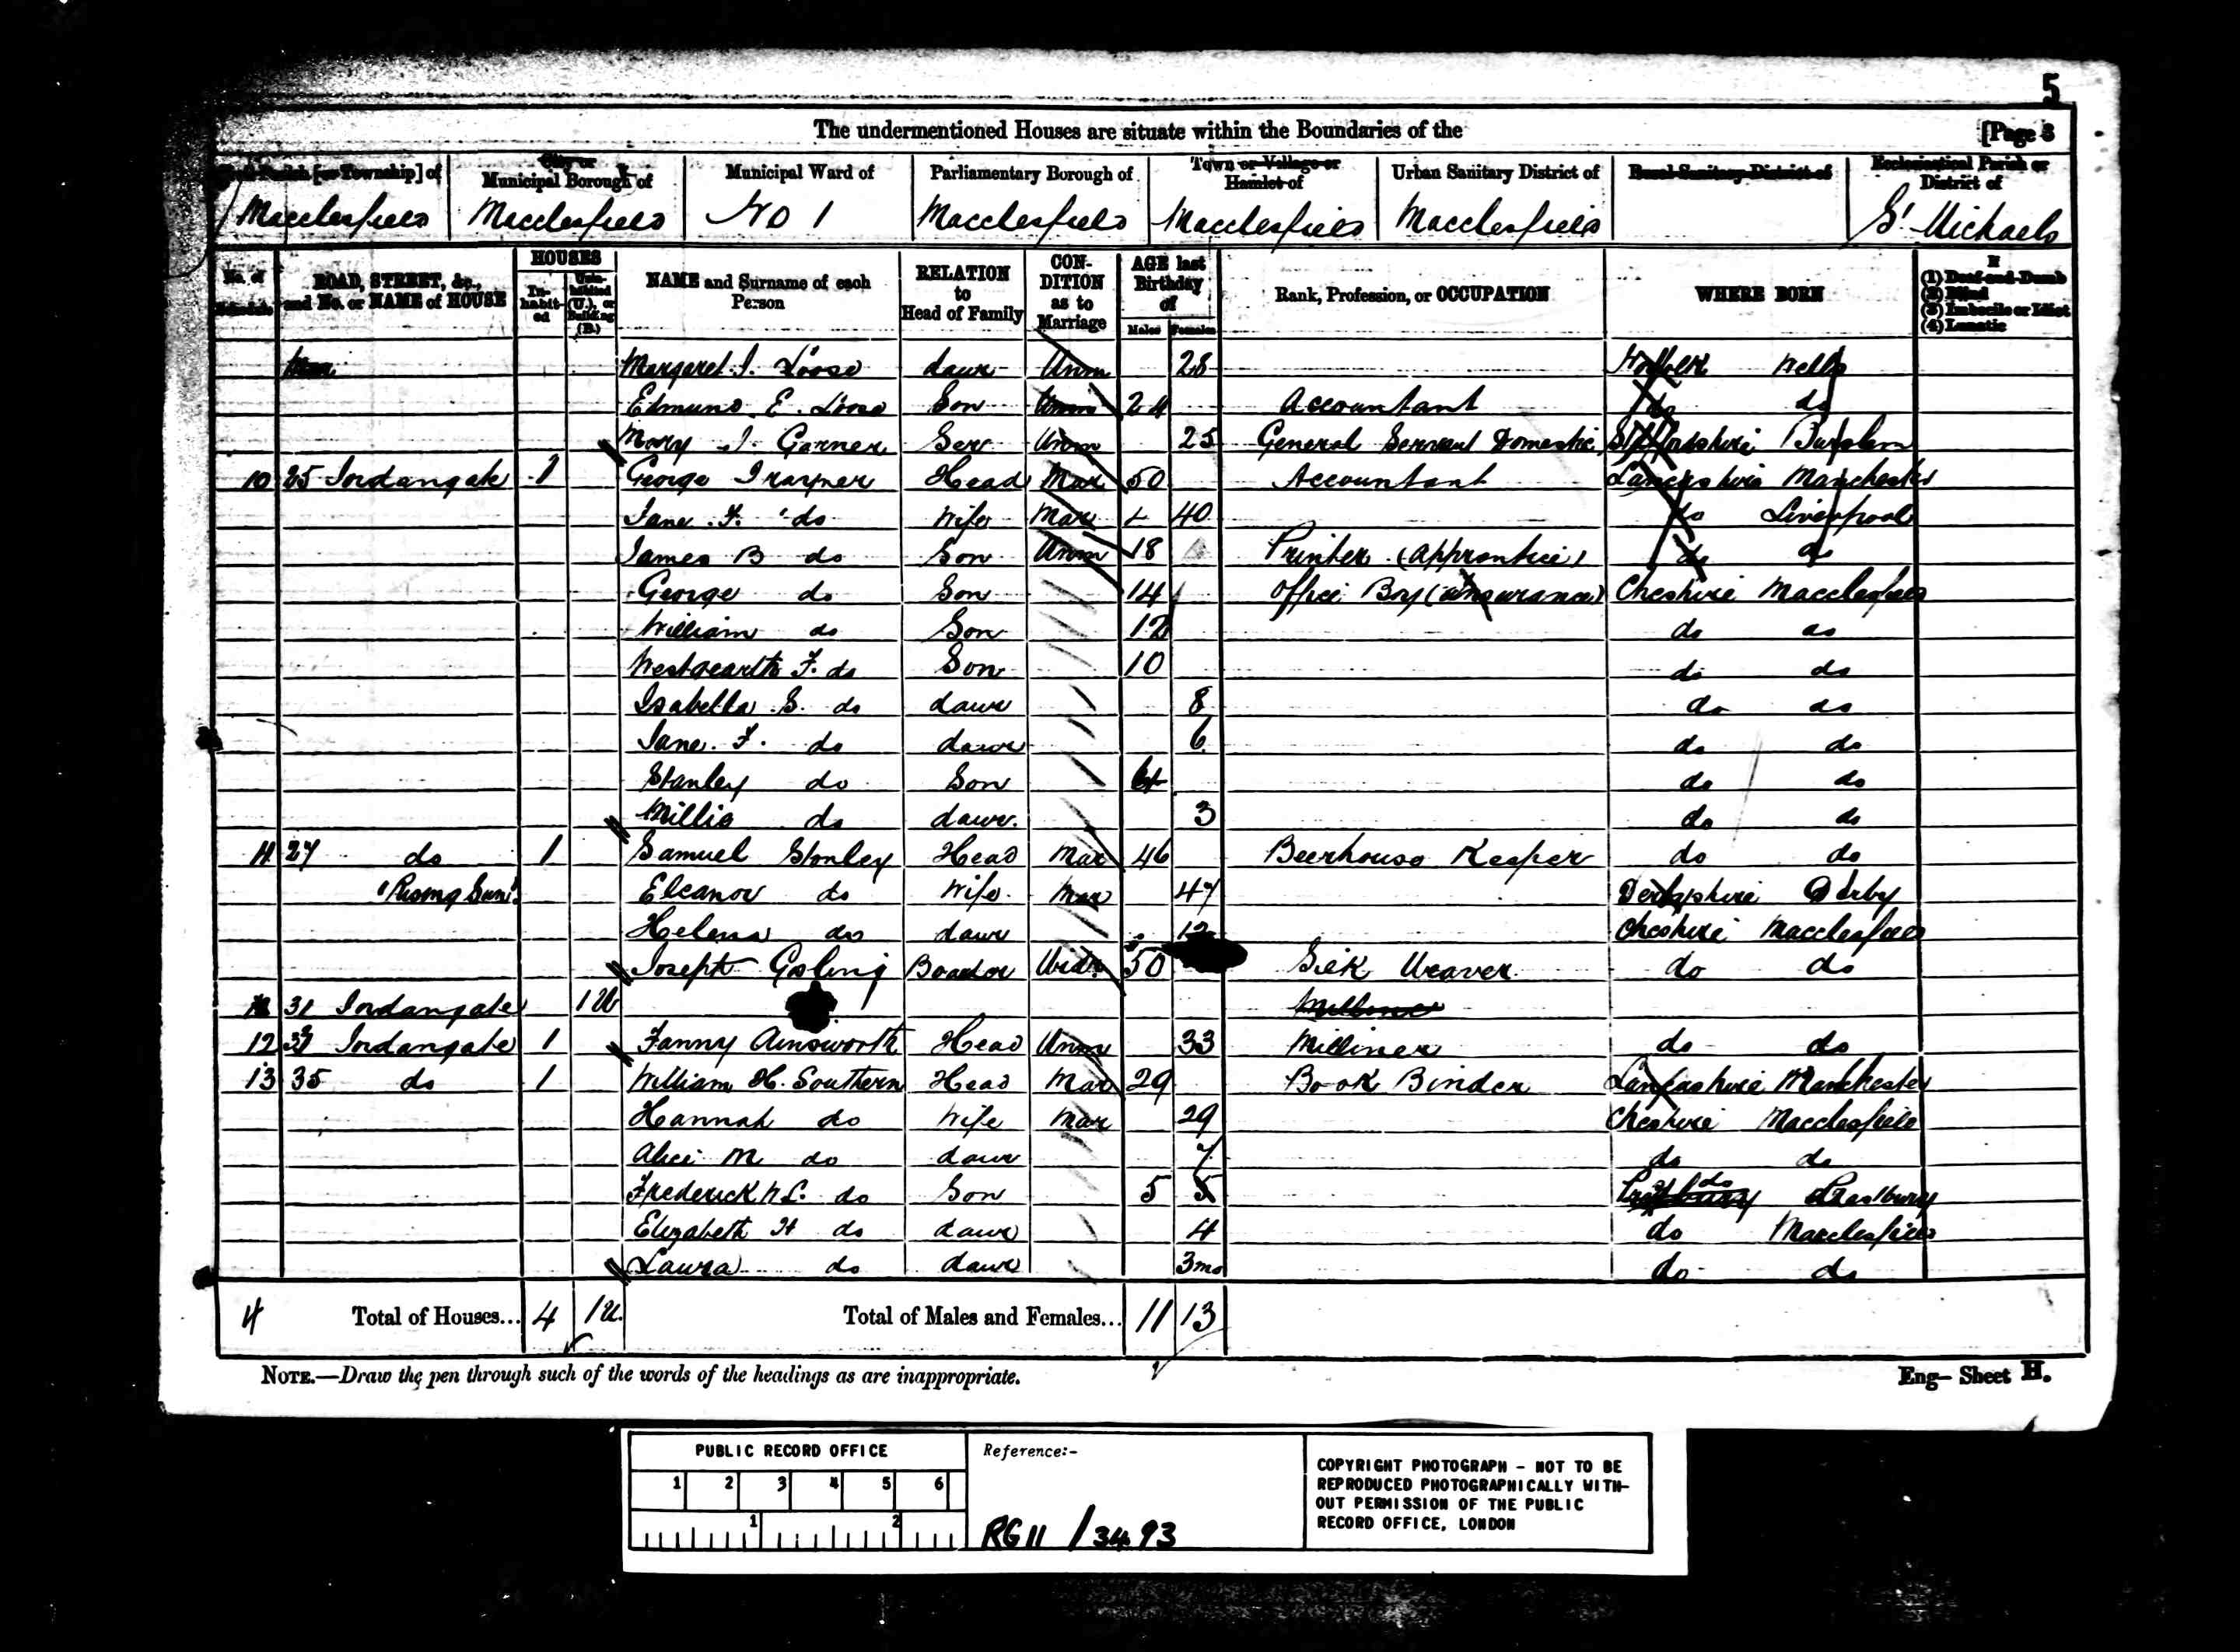 5
The undermentioned Houses are situate within the Boundaries of the [Page 3
Civil Parish [or Township] of City or Municipal Borough of Municipal Ward of Parliamentary Borough of Town or Village or Hamlet of Urban Sanitary District of Rural Sanitary District of Ecclesiastical Parish or District of
Macclesfield Macclesfield No 1 Macclesfield Macclesfield Macclesfield St Michaels
No. of Schedule ROAD, STREET, &c., and No. or NAME of HOUSE HOUSES Inhabited Uninhabited (U.), or Building (B.) NAME and Surname of each Person RELATION to Head of Family CONDITION as to Marriage AGE last Birthday of Males Females Rank, Profession, or OCCUPATION WHERE BORN If (1) Deaf-and-Dumb (2) Blind (3) Imbecile or Idiot (4) Lunatic
Margaret I. Loose daur Unm 28 Norfolk Wells
Edmund E. Loose Son Unm 24 Accountant do do
Mary J. Garner Ser Unm 25 General Servant Domestic Staffordshire Burslem
10 25 Jordangate 1 George Trayner Head Mar 50 Accountant Lancashire Manchester
Jane F. do Wife Mar 40 do Liverpool
James B do Son Unm 18 Printer (Apprentice) do do
George do Son 14 Office Boy (Insurance) Cheshire Macclesfield
William do Son 12 do do
Westgearth F. do Son 10 do do
Isabella S. do daur 8 do do
Jane. F. do daur 6 do do
Stanley do Son do do
Millie do daur. 3 do do
11 27 do 1 Samuel Stonley Head Mar 46 Beerhouse Keeper do do
"Rising Sun" Eleanor do Wife Mar 47 Derbyshire Derby
Helena do daur 12 Cheshire Macclesfield
Joseph Gosling Boarder Widr 50 Silk Weaver do do
31 Jordangate 1U Milliner
12 33 Jordangate 1 Fanny Ainsworth Head Unm 33 Milliner do do
13 35 do 1 William H. Southern Head Mar 29 Book Binder Lancashire Manchester
Hannah do Wife Mar 29 Cheshire Macclesfield
Alice M do daur 7 do do
Frederick W L. do Son 5 5 Prestbury do Prestbury
Elizabeth H do daur 4 do Macclesfield
Laura do daur 3mo do do
4 Total of Houses... 4 1U. Total of Males and Females... 11 13
NOTE.—Draw the pen through such of the words of the headings as are inappropriate. Eng— Sheet H.
PUBLIC RECORD OFFICE
1 2 3 4 5 6
1 2
Reference:-
RG 11 / 3493
COPYRIGHT PHOTOGRAPH - NOT TO BE
REPRODUCED PHOTOGRAPHICALLY WITH-
OUT PERMISSION OF THE PUBLIC
RECORD OFFICE, LONDON